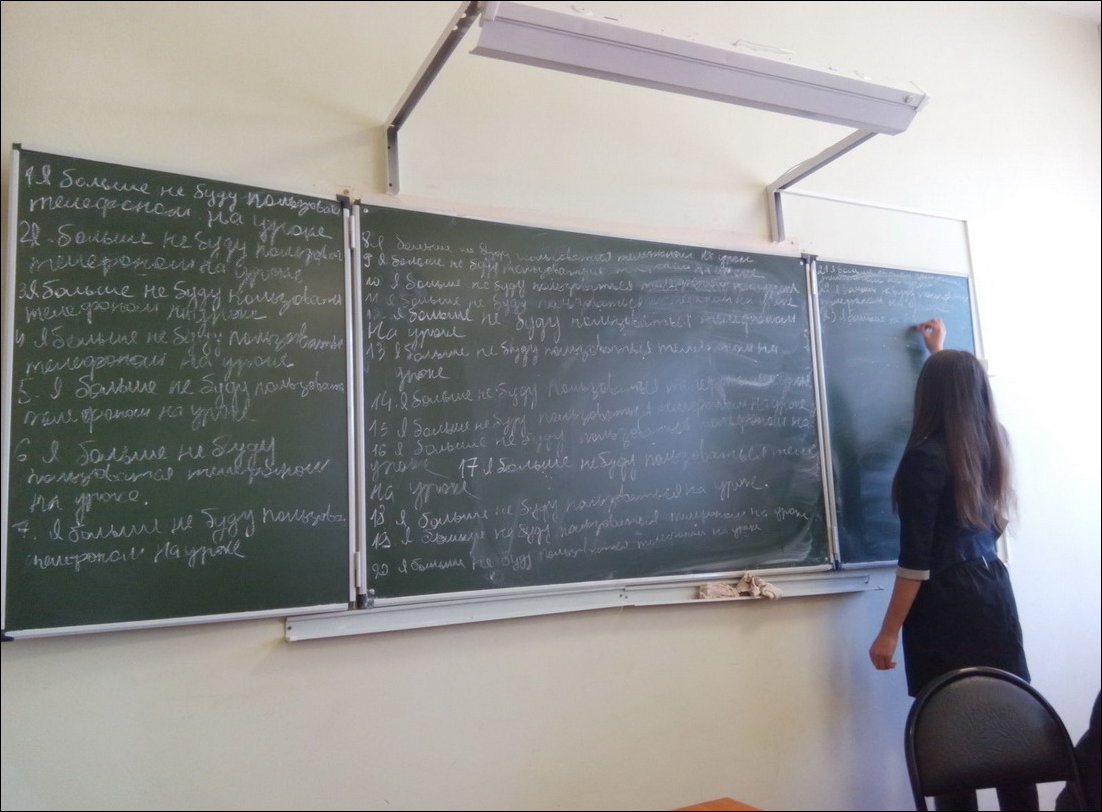 1 Я больше не буду пользова
телефоном на уроке
2 Я. больше не буду пользова
телефоном на уроке
3 Я больше не буду пользовать
телефоном на уроке
4 Я больше не буду пользовать
телефоном на уроке
5. Я больше не буду пользовать
телефоном на уроке
6 Я больше не буду
пользоваться телефоном
на уроке.
7. Я больше не буду пользова
телефоном на уроке
8 Я больше не буду пользоваться телефоном на уроке
9 Я больше не буду пользоваться телефоном на уроке
10 Я больше не буду пользоваться телефоном на уроке
11 Я больше не буду пользоваться телефоном на уроке
12 Я больше не буду пользоваться телефоном
на уроке
13 Я больше не буду пользоваться телефоном на
уроке
14. Я больше не буду пользоваться телефоном на уроке
15 Я больше не буду пользоваться телефоном на уроке
16 Я больше не буду пользоваться телефоном на
уроке 17 Я больше не буду пользоваться теле
на уроке
18 Я больше не буду пользоваться на уроке.
19 Я больше не буду пользоваться телефоном на уроке
20 Я больше не буду пользоваться телефоном на уроке
21 Я больше не буду
телефоном на уроке
23 Я больше не